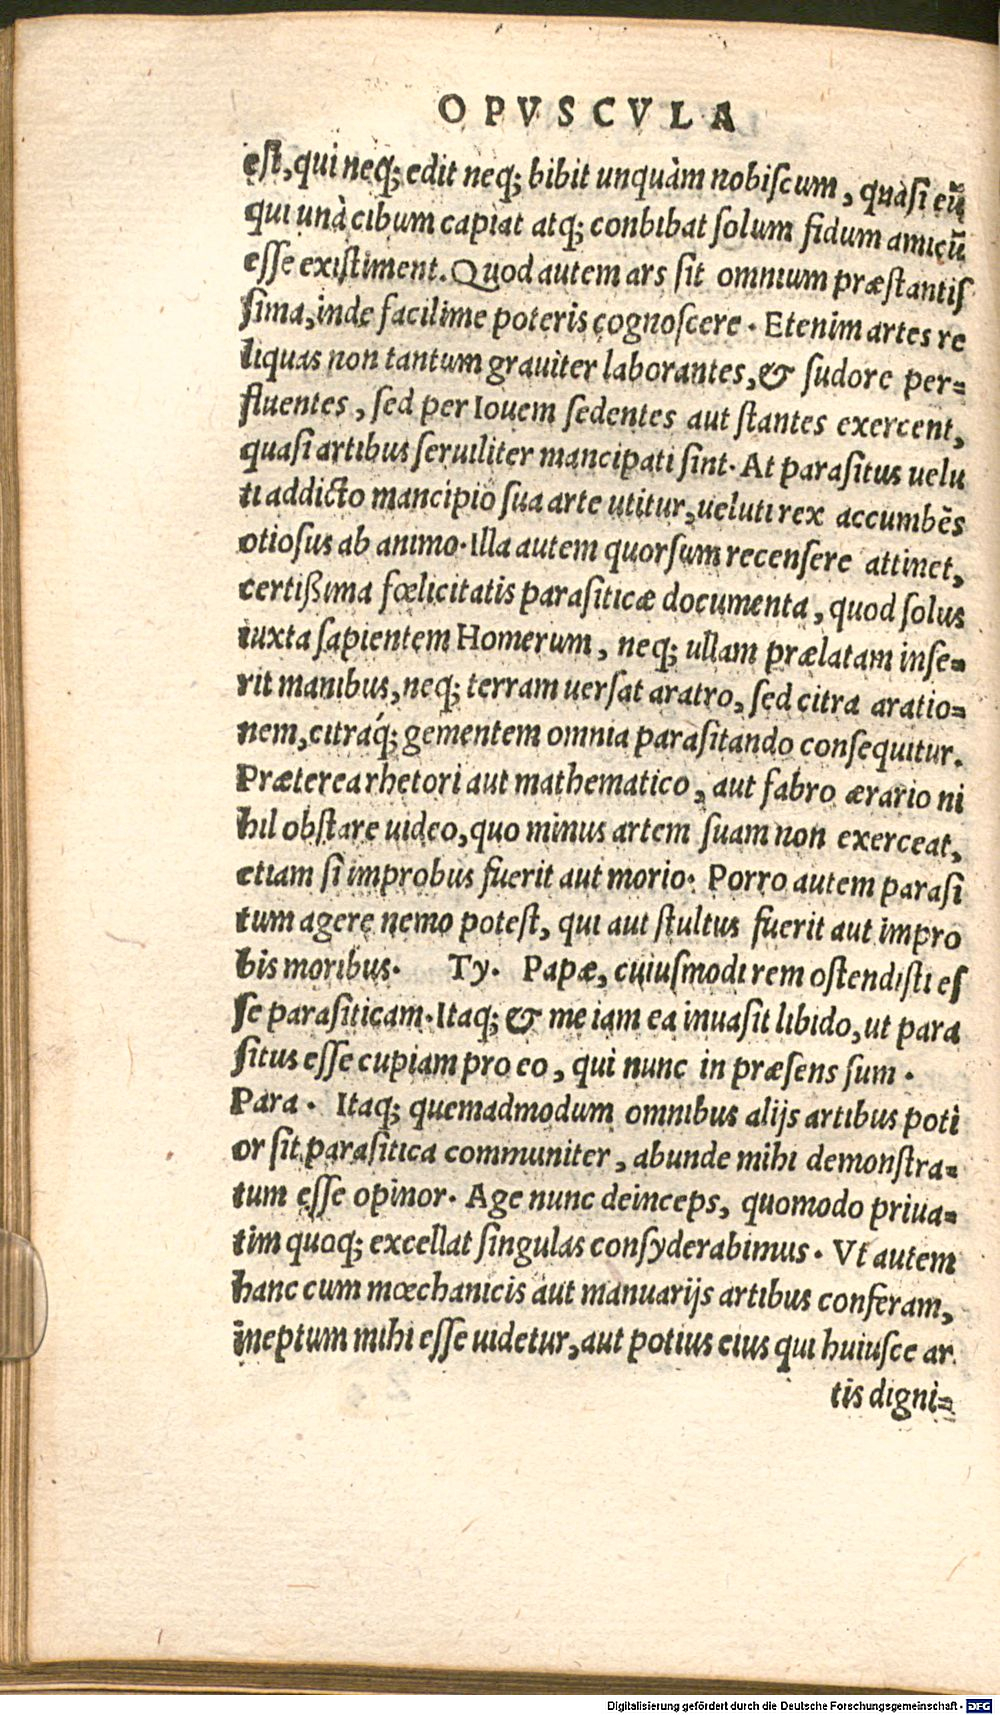 OPVSCVLA
est, qui neq; edit neq; bibit unquàm nobiscum, quasi eũ
qui unà cibum capiat atq; conbibat solum fidum amicũ
esse existiment. Quod autem ars sit omnium præstantis
sima, inde facilime poteris cognoscere. Etenim artes re
liquas non tantum grauiter laborantes, & sudore per=
fluentes, sed per Iouem sedentes aut stantes exercent,
quasi artibus seruiliter mancipati sint. At parasitus uelu
ti addicto mancipio sua arte utitur, ueluti rex accumbẽs
otiosus ab animo. Illa autem quorsum recensere attinet,
certißima fœlicitatis parasiticæ documenta, quod solus
iuxta sapientem Homerum, neq; ullam prælatam inse=
rit manibus, neq; terram uersat aratro, sed citra aratio=
nem, citráq; gementem omnia parasitando consequitur.
Præterea rhetori aut mathematico, aut fabro ærario ni
hil obstare uideo, quo minus artem suam non exerceat,
etiam si improbus fuerit aut morio. Porro autem parasi
tum agere nemo potest, qui aut stultus fuerit aut impro
bis moribus. Ty. Papæ, cuiusmodi rem ostendisti es
se parasiticam. Itaq; & me iam ea inuasit libido, ut para
situs esse cupiam pro eo, qui nunc in præsens sum.
Para. Itaq; quemadmodum omnibus alijs artibus poti
or sit parasitica communiter, abunde mihi demonstra=
tum esse opinor. Age nunc deinceps, quomodo priua=
tim quoq; excellat singulas consyderabimus. Vt autem
hanc cum mœchanicis aut manuarijs artibus conferam,
ineptum mihi esse uidetur, aut potius eius qui huiusce ar
tis digni=
Digitalisierung gefördert durch die Deutsche Forschungsgemeinschaft - DFG